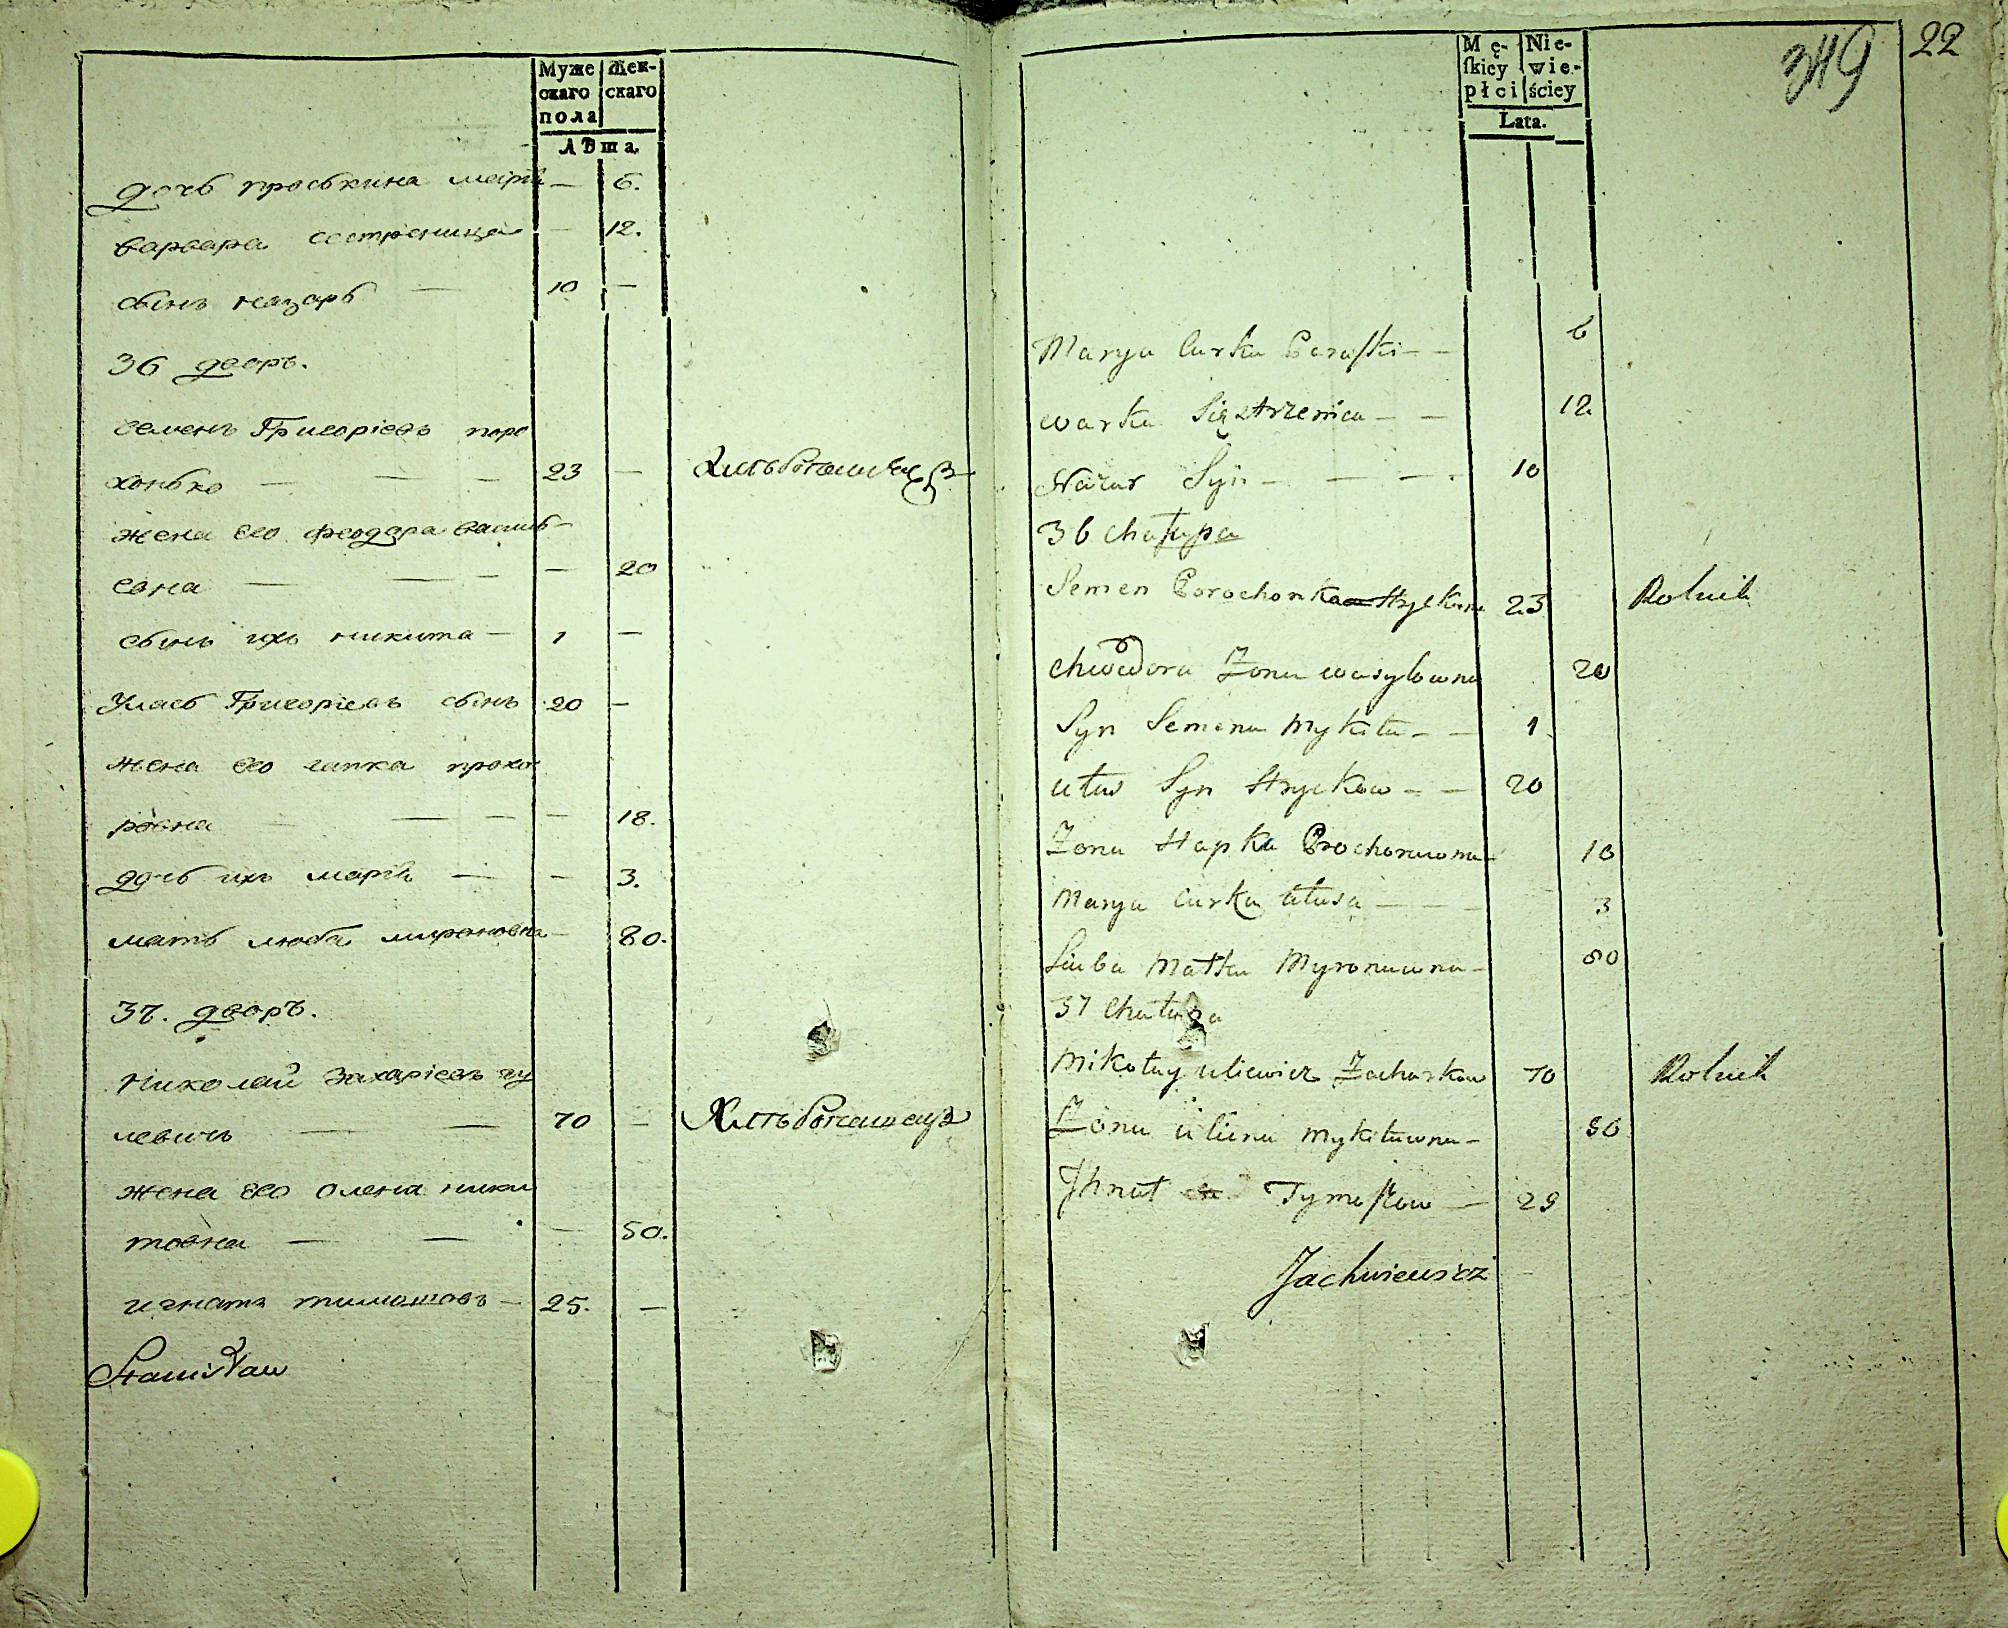 Муже
скаго
пола
Жен-
скаго
Лѣта.
дочь проськина марія — 6.
варвара сестреница — 12.
сынъ назарь — 10 —
36 дворъ.
семенъ Григоріевъ поро
хонько — — — 23 —
жена его феодора василь-
евна — — — — 20
сынъ ихъ никита — 1 —
Улась Григоріевъ сынъ 20 —
жена его гапка прохо-
ровна — — — — 18.
дочь ихъ марія — — 3.
мать люба мироновна — 80.
37. дворъ.
николай Захаріевъ гу
левичъ — — 70 —
жена его олена ники
товна — — — 50.
игнатъ тимошовъ — 25. —
Stanisław
349
22
Mę-
skiey
płci
Nie-
wie-
ściey
Lata.
Marya Curka Paraski — — 6
Warka Siestrzenica — — 12
Nazar Syn — — — 10
36 Chałupa
Semen Porochonko Hryckow 23 Rolnik
Chwedora Zona Wasylowna 20
Syn Semena Mykita — — 1
Ułas Syn Hryckow — — 20
Zona Hapka Prochorowna 18
Marya Curka Ułasa — — — 3
Luba Matka Myronowna — 80
37 Chałupa
Mikołay uliewicz Zacharkow 70 Rolnik
Zona Uliena Mykitowna — 50
Ihnat Tymoszow — 29
Jachniewicz